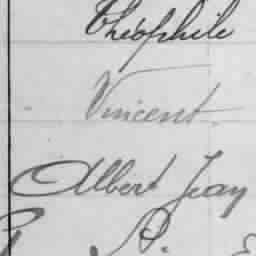 Théophile
Vincent.
Albert Jean